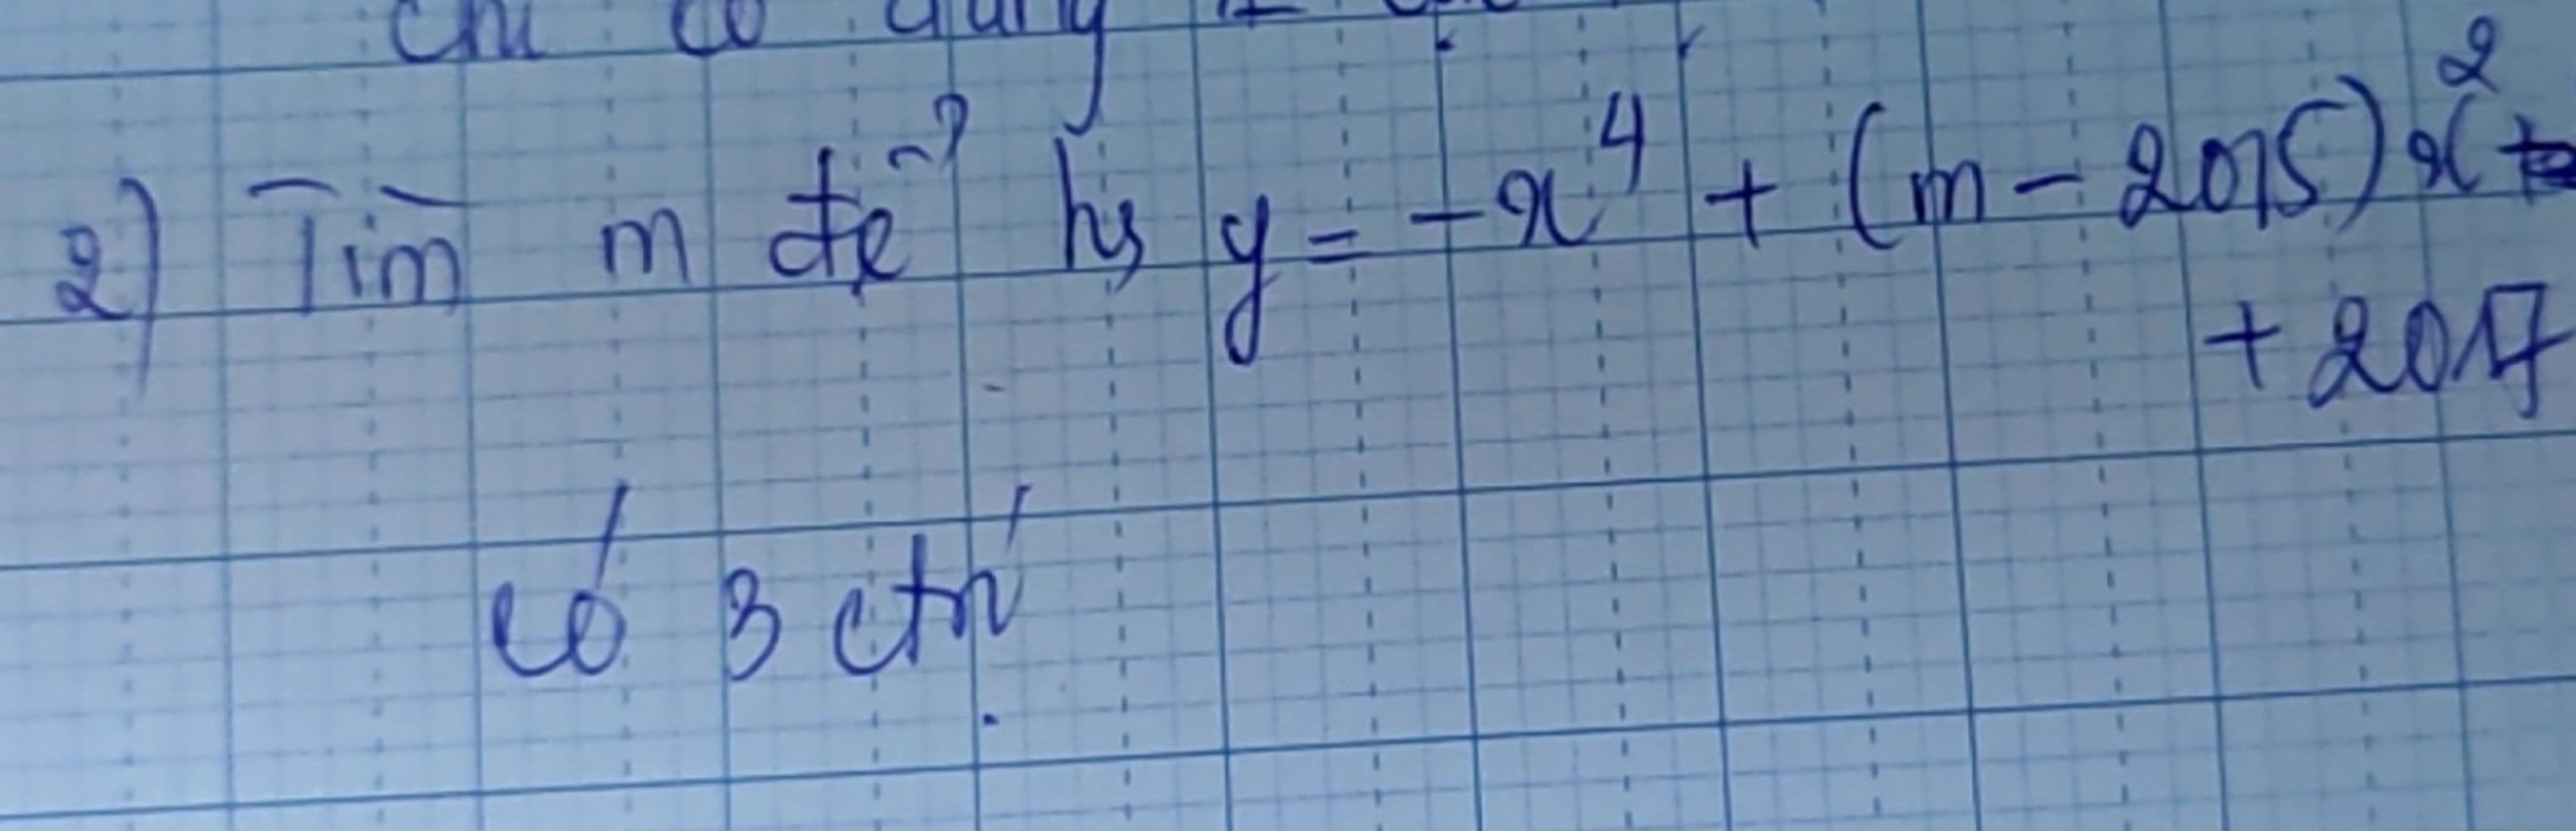 chỉ có đúng 1
2) Tìm m để hs y = -x⁴ + (m - 2015)x²
+ 2017
có 3 ctrị